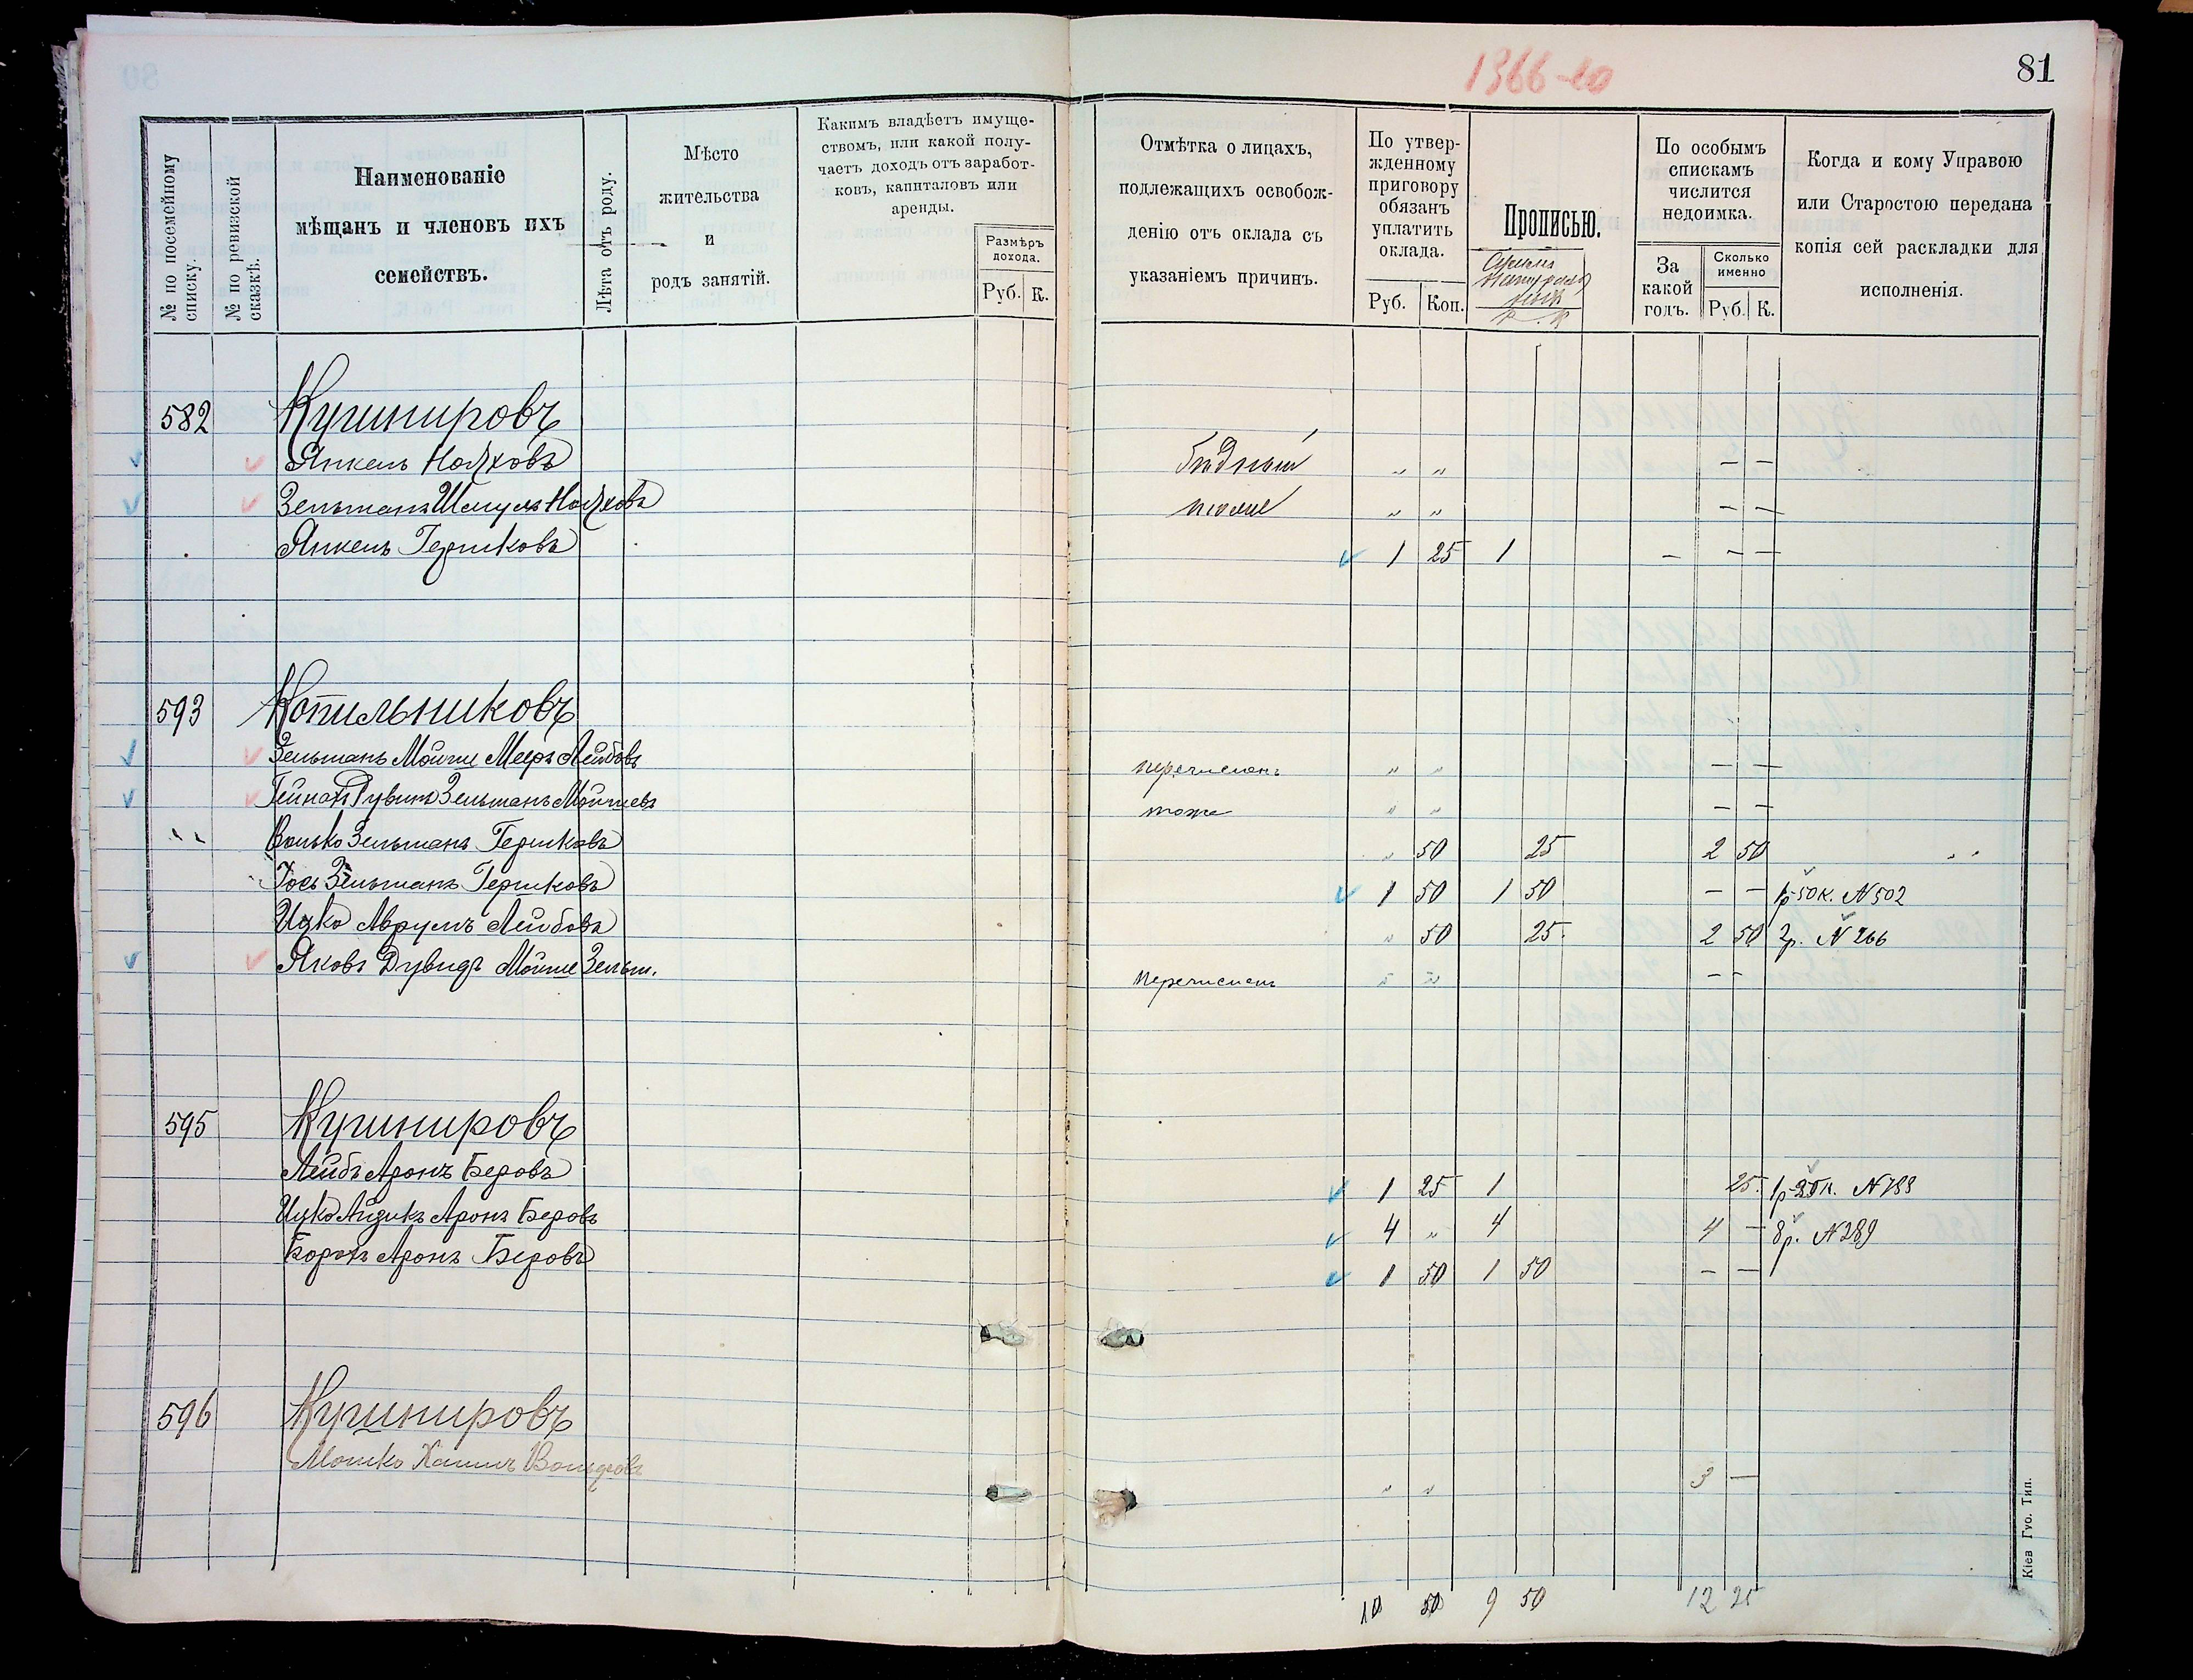 1366-ю
81
№ по посемейному списку.
№ по ревизской сказкѣ.
Наименованіе
мѣщанъ и членовъ ихъ
семействъ.
Лѣта отъ роду.
Мѣсто
жительства
и
родъ занятій.
Какимъ владѣетъ имуще-
ствомъ, или какой полу-
чаетъ доходъ отъ заработ-
ковъ, капиталовъ или
аренды.
Размѣръ
дохода.
Руб. К.
Отмѣтка о лицахъ,
подлежащихъ освобож-
денію отъ оклада съ
указаніемъ причинъ.
По утвер-
жденному
приговору
обязанъ
уплатить
оклада.
Руб. Коп.
Прописью.
По особымъ
спискамъ
числится
недоимка.
За
какой
годъ.
Сколько
именно
Руб. К.
Когда и кому Управою
или Старостою передана
копія сей раскладки для
исполненія.
582 Кушнировъ
Янкель Нохховъ бѣдный „ „ — —
Зельманъ Шмуль Нохховъ тоже „ „ — —
Янкель Гершковъ 1 25 1 — — —
593 Котильниковъ
Зельманъ Мойше Мееръ Лейбовъ перечисленъ „ „ — —
Рувинъ Зельманъ Мойшевъ тоже „ „ — —
Волько Зельманъ Гершковъ „ 50 25 2 50
Іось Зельманъ Гершковъ 1 50 1 50 — — 1р 50к. N 502
Ицко Аврумъ Лейбовъ „ 50 25 2 50 2р. N 266
Яковъ Дувидъ Мойше Зельм. перечисленъ „ „ — —
595 Кушнировъ
Лейбъ Аронъ Беровъ 1 25 1 25
Ицко Айзикъ Аронъ Беровъ 4 „ 4 4 — 8р. N 289
Борохъ Аронъ Беровъ 1 50 1 50 — —
596 Кушнировъ
Мошко Хаимъ Вольфовъ „ „ 3 —
10 50 9 50 12 25
Кіев Гуо. Тип.